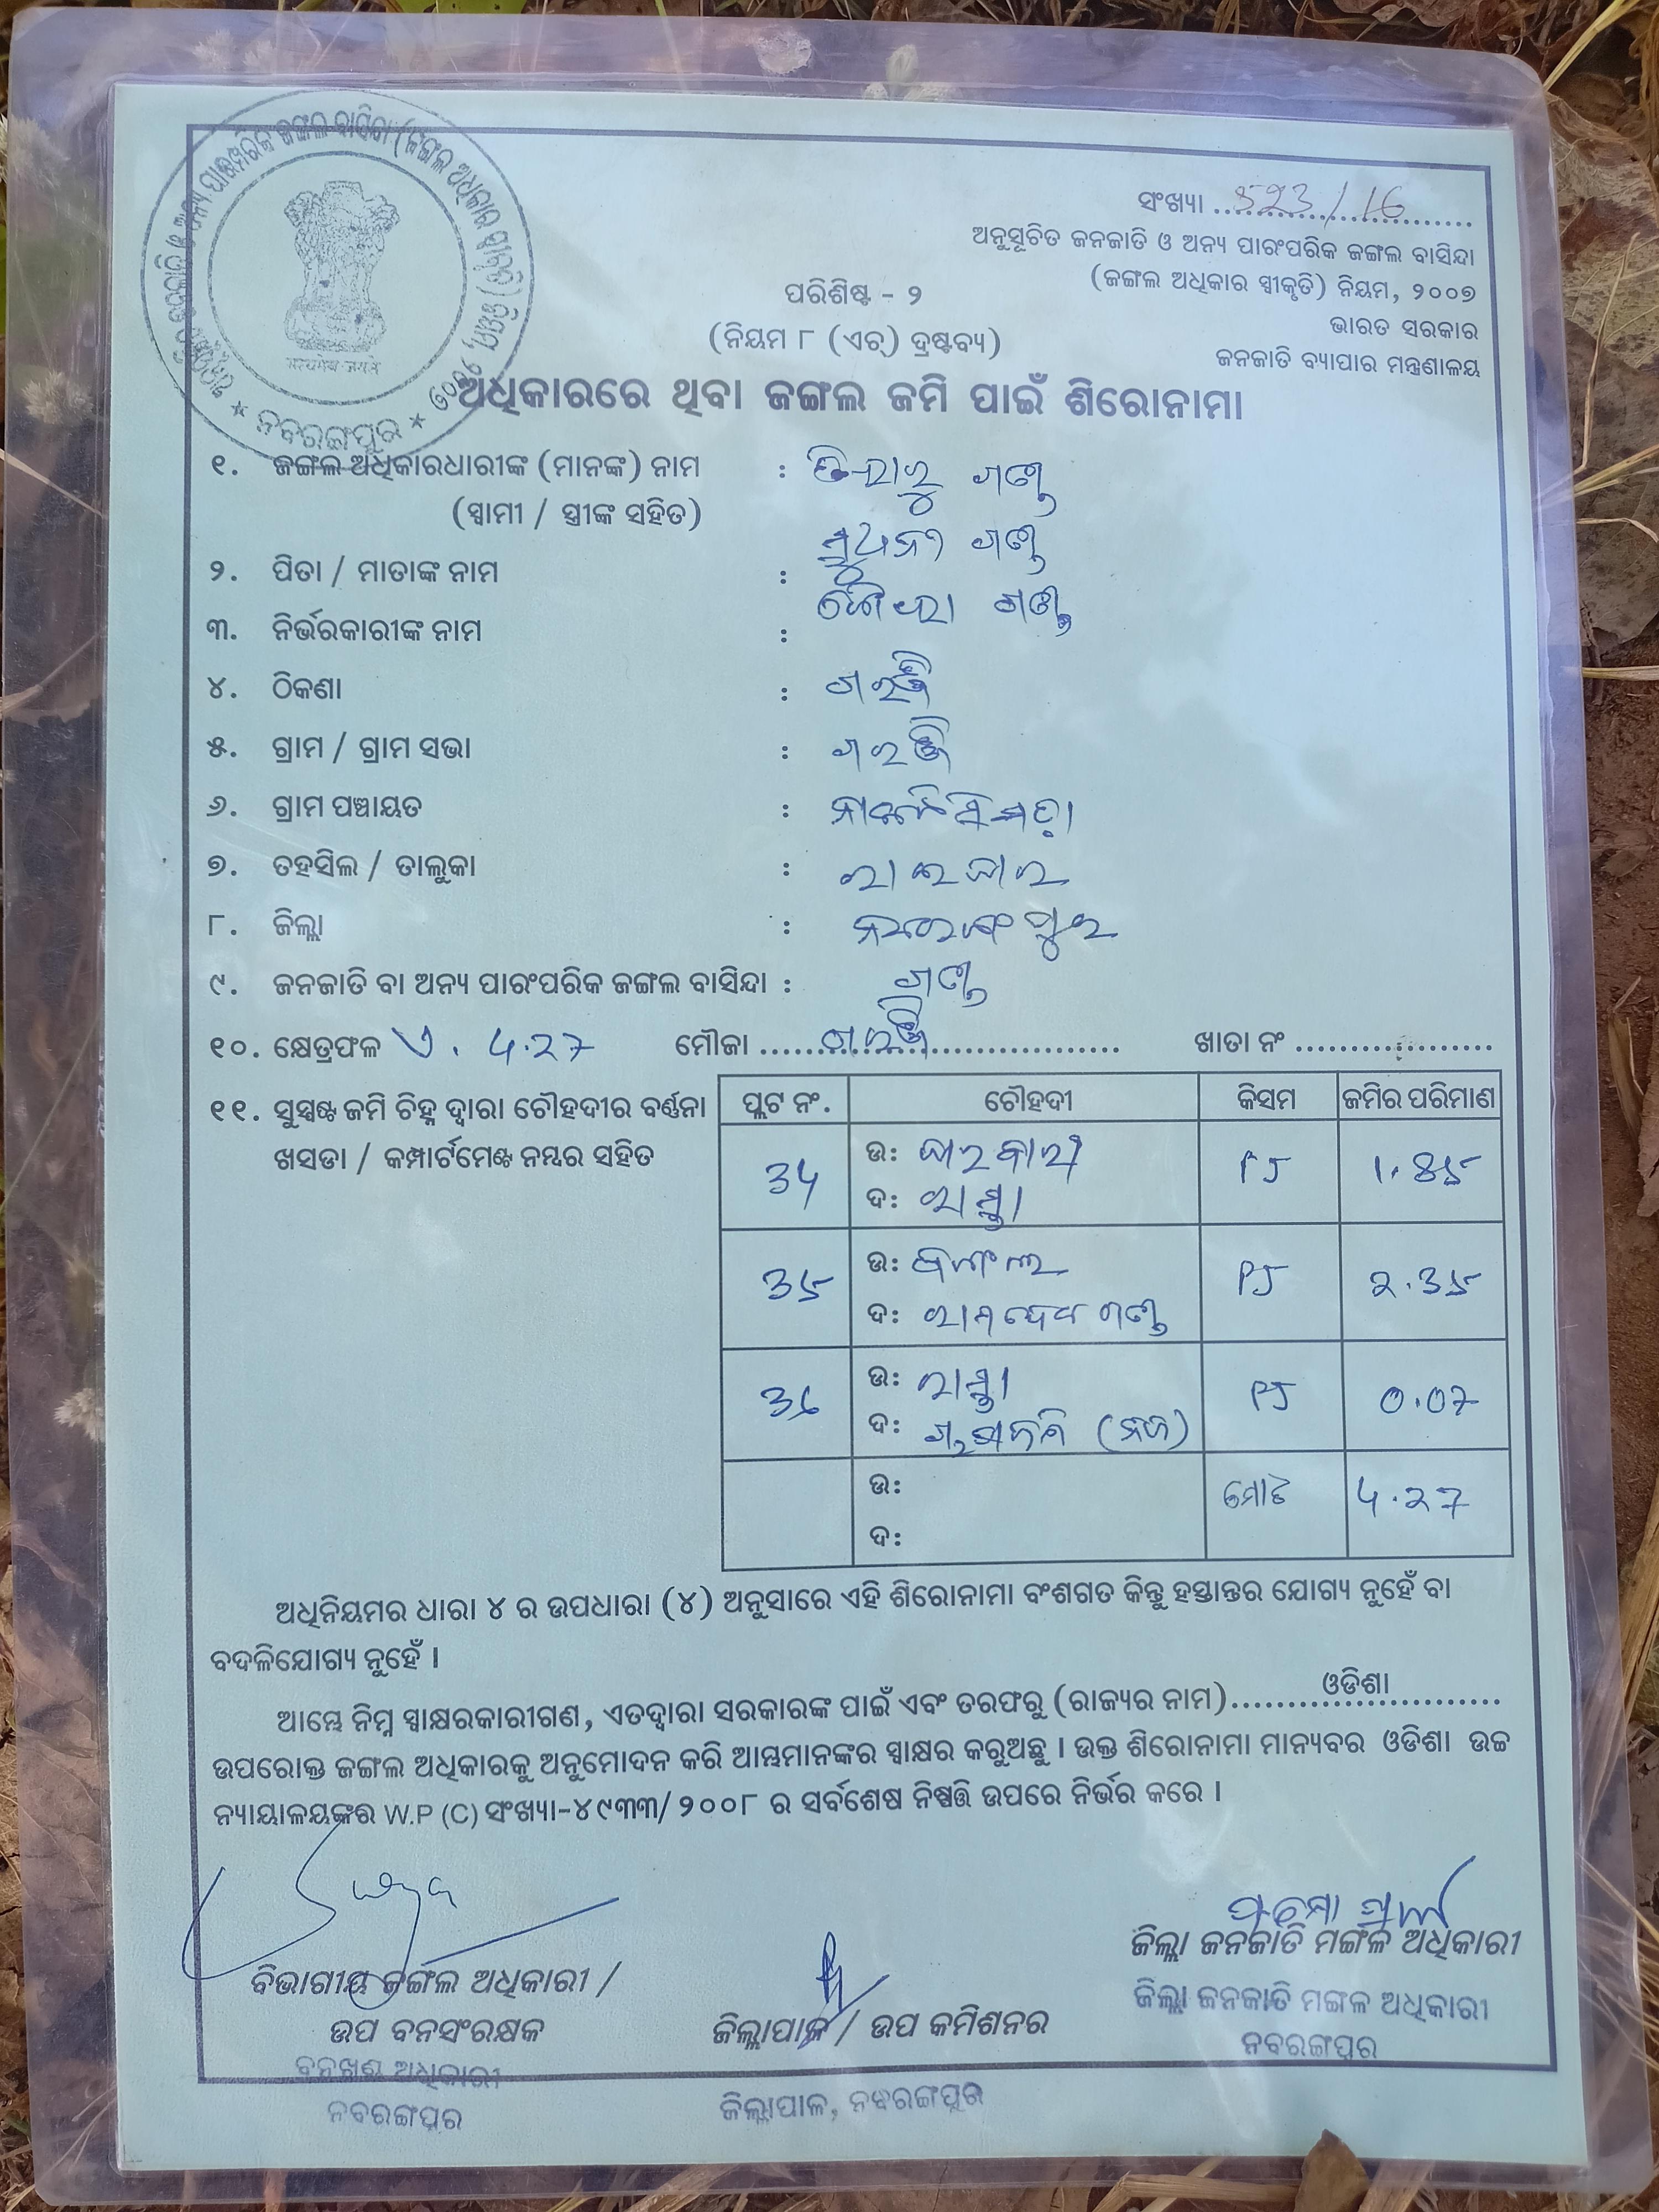 ସଂଖ୍ୟା ..523/16..
ଅନୁସୂଚିତ ଜନଜାତି ଓ ଅନ୍ୟ ପାରଂପରିକ ଜଙ୍ଗଲ ବାସିନ୍ଦା
(ଜଙ୍ଗଲ ଅଧିକାର ସ୍ୱୀକୃତି) ନିୟମ, ୨୦୦୭
ଭାରତ ସରକାର
ଜନଜାତି ବ୍ୟାପାର ମନ୍ତ୍ରଣାଳୟ
ପରିଶିଷ୍ଟ - ୨
(ନିୟମ ୮ (ଏଚ୍) ଦ୍ରଷ୍ଟବ୍ୟ)
सत्यमेव जयते
ନବରଙ୍ଗପୁର
ଅଧିକାରରେ ଥିବା ଜଙ୍ଗଲ ଜମି ପାଇଁ ଶିରୋନାମା
୧. ଜଙ୍ଗଲ ଅଧିକାରଧାରୀଙ୍କ (ମାନଙ୍କ) ନାମ : ଗଣ୍ଡ
(ସ୍ୱାମୀ / ସ୍ତ୍ରୀଙ୍କ ସହିତ)
ଗଣ୍ଡ
୨. ପିତା / ମାତାଙ୍କ ନାମ : ଗଣ୍ଡ
୩. ନିର୍ଭରକାରୀଙ୍କ ନାମ :
୪. ଠିକଣା : ଗରଞ୍ଜି
୫. ଗ୍ରାମ / ଗ୍ରାମ ସଭା : ଗରଞ୍ଜି
୬. ଗ୍ରାମ ପଞ୍ଚାୟତ :
୭. ତହସିଲ / ତାଲୁକା : ରାଇଘର
୮. ଜିଲ୍ଲା : ନବରଙ୍ଗପୁର
୯. ଜନଜାତି ବା ଅନ୍ୟ ପାରଂପରିକ ଜଙ୍ଗଲ ବାସିନ୍ଦା : ଗଣ୍ଡ
୧୦. କ୍ଷେତ୍ରଫଳ ଏ. 4.27 ମୌଜା ....ଗରଞ୍ଜି.... ଖାତା ନଂ ....
୧୧. ସୁସ୍ପଷ୍ଟ ଜମି ଚିହ୍ନ ଦ୍ୱାରା ଚୌହଦୀର ବର୍ଣ୍ଣନା
ଖସଡା / କମ୍ପାର୍ଟମେଣ୍ଟ ନମ୍ବର ସହିତ
ପ୍ଲଟ ନଂ. ଚୌହଦୀ କିସମ ଜମିର ପରିମାଣ
34 ଉ: PJ 1.85
ଦ: ରାସ୍ତା
35 ଉ: ଜଙ୍ଗଲ PJ 2.35
ଦ: ଗଣ୍ଡ
36 ଉ: ରାସ୍ତା PJ 0.07
ଦ:
ଉ: ମୋଟ 4.27
ଦ:
ଅଧିନିୟମର ଧାରା ୪ ର ଉପଧାରା (୪) ଅନୁସାରେ ଏହି ଶିରୋନାମା ବଂଶଗତ କିନ୍ତୁ ହସ୍ତାନ୍ତର ଯୋଗ୍ୟ ନୁହେଁ ବା
ବଦଳିଯୋଗ୍ୟ ନୁହେଁ ।
ଆମ୍ଭେ ନିମ୍ନ ସ୍ୱାକ୍ଷରକାରୀଗଣ, ଏତଦ୍ୱାରା ସରକାରଙ୍କ ପାଇଁ ଏବଂ ତରଫରୁ (ରାଜ୍ୟର ନାମ)....ଓଡିଶା....
ଉପରୋକ୍ତ ଜଙ୍ଗଲ ଅଧିକାରକୁ ଅନୁମୋଦନ କରି ଆମ୍ଭମାନଙ୍କର ସ୍ୱାକ୍ଷର କରୁଅଛୁ । ଉକ୍ତ ଶିରୋନାମା ମାନ୍ୟବର ଓଡିଶା ଉଚ୍ଚ
ନ୍ୟାୟାଳୟଙ୍କର W.P (C) ସଂଖ୍ୟା-୪୯୩୩/୨୦୦୮ ର ସର୍ବଶେଷ ନିଷ୍ପତ୍ତି ଉପରେ ନିର୍ଭର କରେ ।
ଜିଲ୍ଲା ଜନଜାତି ମଙ୍ଗଳ ଅଧିକାରୀ
ବିଭାଗୀୟ ଜଙ୍ଗଲ ଅଧିକାରୀ /
ଉପ ବନସଂରକ୍ଷକ
ଜିଲ୍ଲାପାଳ / ଉପ କମିଶନର
ଜିଲ୍ଲା ଜନଜାତି ମଙ୍ଗଳ ଅଧିକାରୀ
ନବରଙ୍ଗପୁର
ବନଖଣ୍ଡ ଅଧିକାରୀ
ନବରଙ୍ଗପୁର
ଜିଲ୍ଲାପାଳ, ନବରଙ୍ଗପୁର